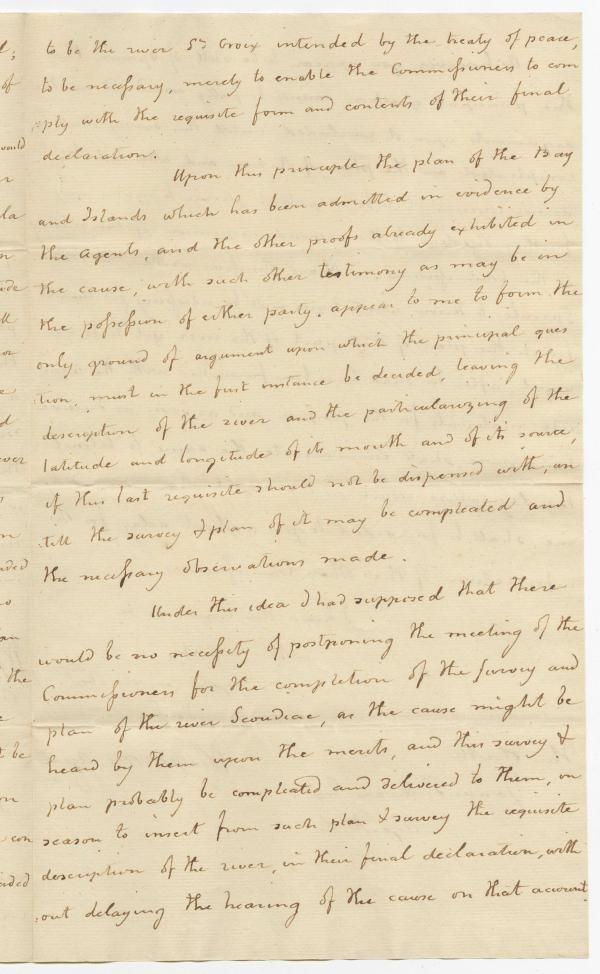 to be the river St Croix intended by the treaty of peace,
to be necessary, merely to enable the Commissioners to com
ply with the requisite form and contents of their final
declaration.
Upon this principle the plan of the Bay
and Islands which has been admitted in evidence by
the Agents, and the other proofs already exhibited in
the cause, with such other testimony as may be in
the possession of either party, appear to me to form the
only ground of argument upon which the principal ques
tion, must in the first instance be decided, leaving the
description of the river and the particularizing of the
latitude and longitude of its mouth and of its source,
if this last requisite should not be dispensed with, un
till the survey & plan of it may be compleated and
the necessary observations made.
Under this idea I had supposed that there
would be no necessity of postponing the meeting of the
Commissioners for the completion of the survey and
plan of the river Scoudiac, as the cause might be
heard by them upon the merits, and this survey &
plan probably be compleated and delivered to them, in
season to insert from such plan & survey the requisite
description of the river, in their final declaration, with
out delaying the hearing of the cause on that account.